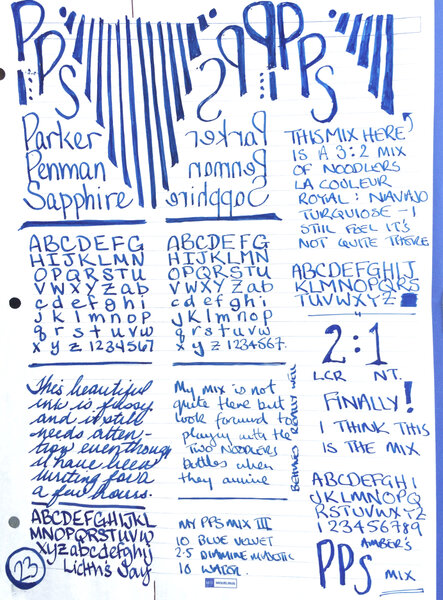 PPS
PPS
PPS
Parker
Penman
Sapphire
Parker
Penman
Sapphire
ABCDEFG
HIJKLMN
OPQRSTU
VWXYZab
cdefghi
jklmnop
qrstuvw
xyz 1234567
ABCDEFG
HIJKLMN
OPQRSTU
VWXYZab
cdefghi
jklmnop
qrstuvw
xyz 1234567.
This beautiful
ink is fussy
and it still
needs atten-
tion even though
it have been
writing for a
a few hours.
ABCDEFGHIJKL
MNOPQRSTUVW
XYZabcdefghij
23
My mix is not
quite there but
look forward to
playing with the
TWO NOODLERS
bottles when
they arrive
BEHAVED REALLY WELL
MY PPS MIX III
10 BLUE VELVET
2.5 DIAMINE MAJESTIC
10 WATER.
THIS MIX HERE
IS A 3:2 MIX
OF NOODLERS
LA COULEUR
ROYAL : NAVAJO
TURQUIOSE - I
STILL FEEL IT'S
NOT QUITE THERE
ABCDEFGHIJ
KLMNOPQRS
TUVWXYZ
2:1
LCR NT.
FINALLY!
I THINK THIS
IS THE MIX
ABCDEFGHI
JKLMNOPQ
RSTUVWXYZ
123456789
AMBER'S
PPS MIX